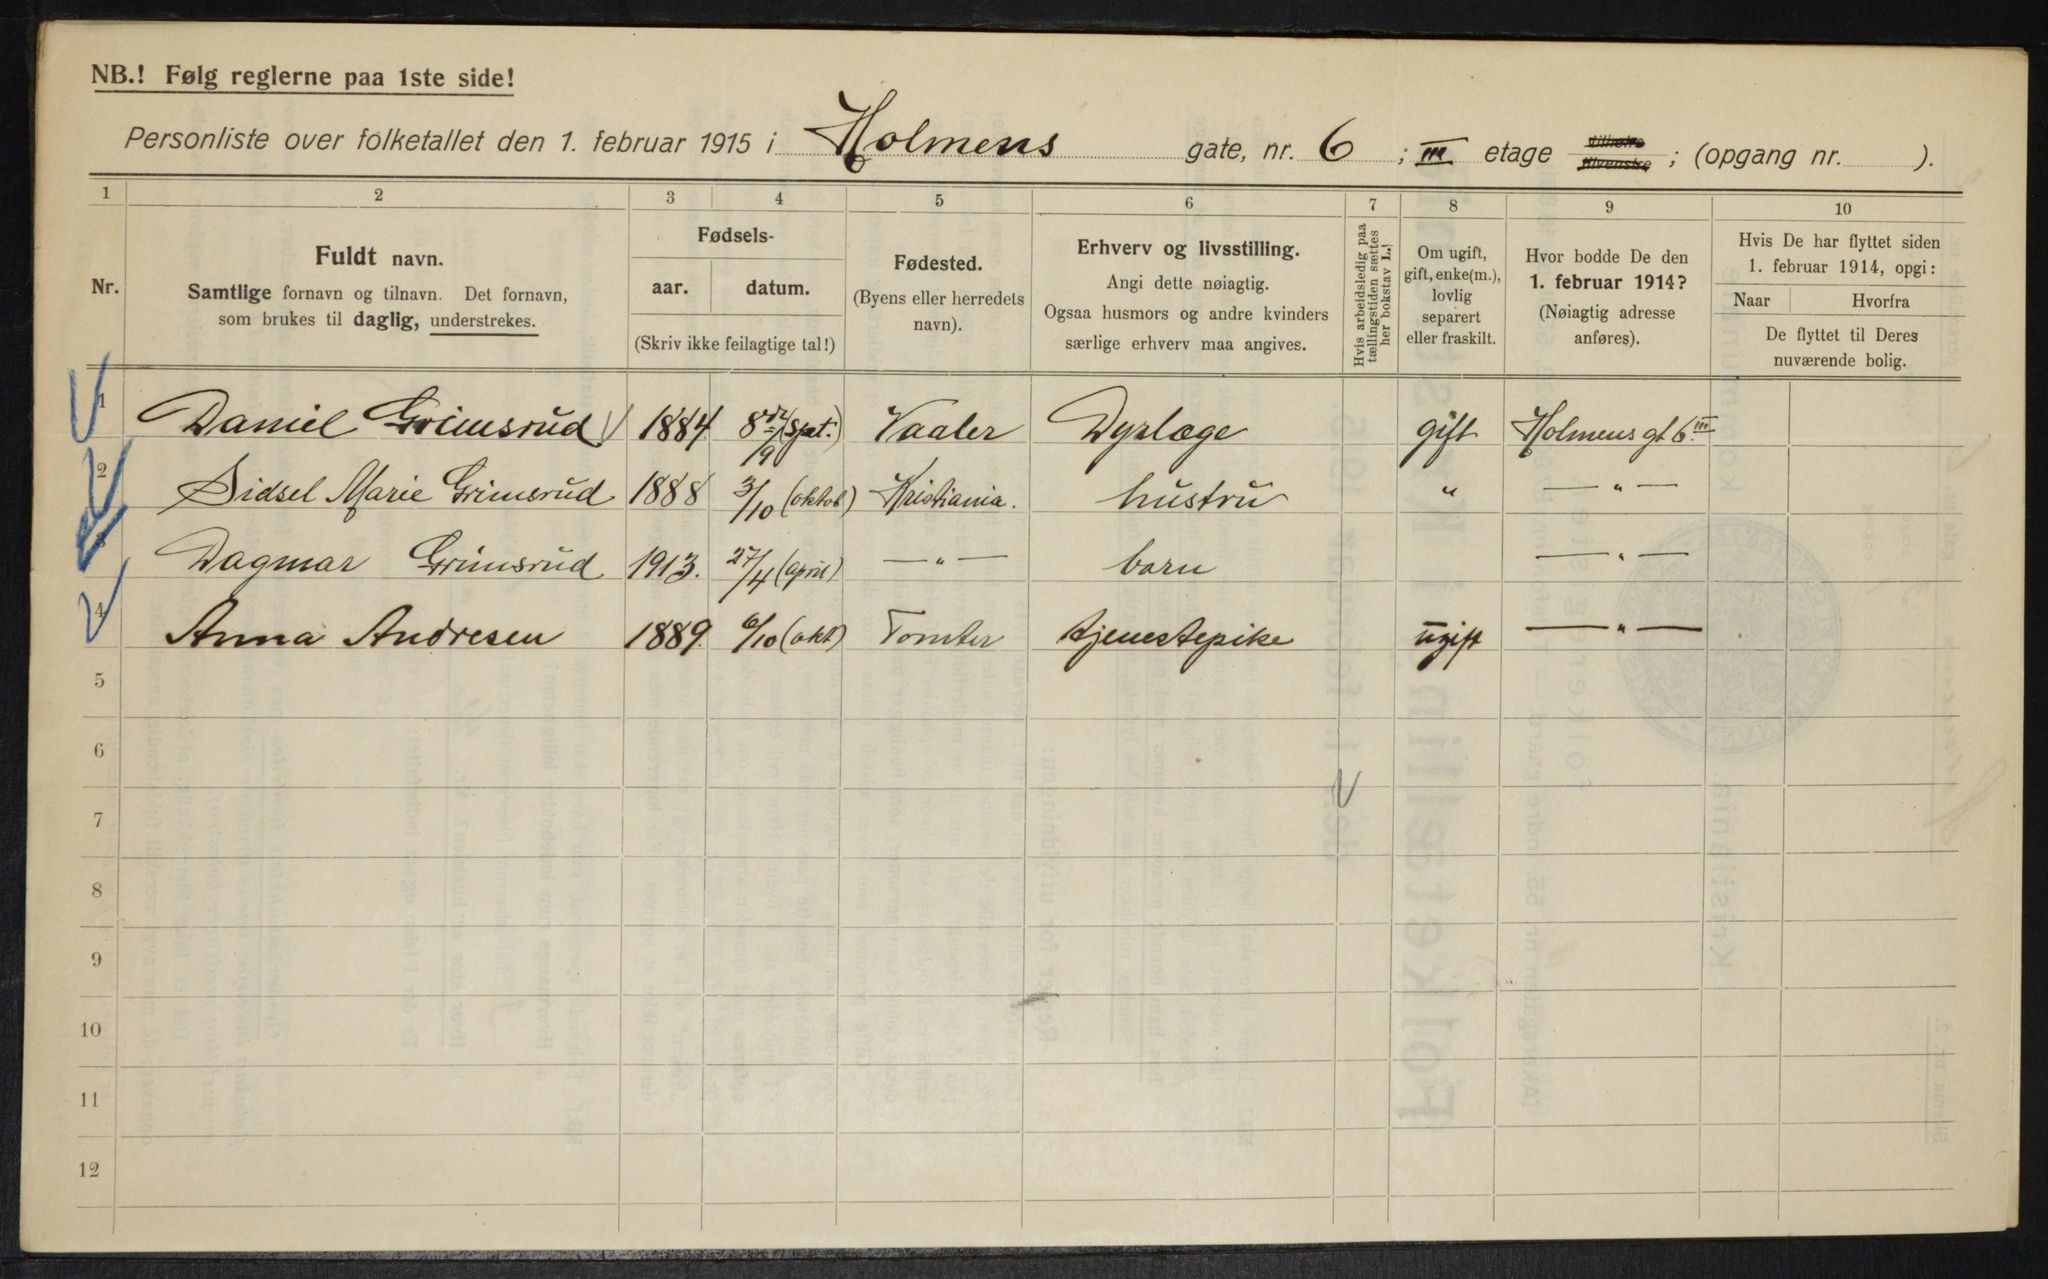 NB.! Følg reglerne paa 1ste side!
Personliste over folketallet den 1. februar 1915 i Holmens gate, nr. 6 ; III etage tilhøire tilvenstre ; (opgang nr. ).
1 2 3 4 5 6 7 8 9 10
Nr.
Fuldt navn.
Samtlige fornavn og tilnavn. Det fornavn,
som brukes til daglig, understrekes.
Fødsels-
aar. datum.
(Skriv ikke feilagtige tal!)
Fødested.
(Byens eller herredets
navn).
Erhverv og livsstilling.
Angi dette nøiagtig.
Ogsaa husmors og andre kvinders
særlige erhverv maa angives.
Hvis arbeidsledig paa
tællingstiden sættes
her bokstav L.!
Om ugift,
gift, enke(m.),
lovlig
separert
eller fraskilt.
Hvor bodde De den
1. februar 1914?
(Nøiagtig adresse
anføres).
Hvis De har flyttet siden
1. februar 1914, opgi:
Naar Hvorfra
De flyttet til Deres
nuværende bolig.
1 Daniel Grimsrud 1884 8de/9 (Sept.) Vaaler Dyrlæge gift Holmens gt 6 III
2 Sidsel Marie Grimsrud 1888 3/10 (oktob) Kristiania. hustru " — " —
3 Dagmar Grimsrud 1913. 27/4 (april) — " — barn — " —
4 Anna Andresen 1889. 6/10 (okt) Tomter tjenestepike ugift — " —
5
6
7
8
9
10
11
12